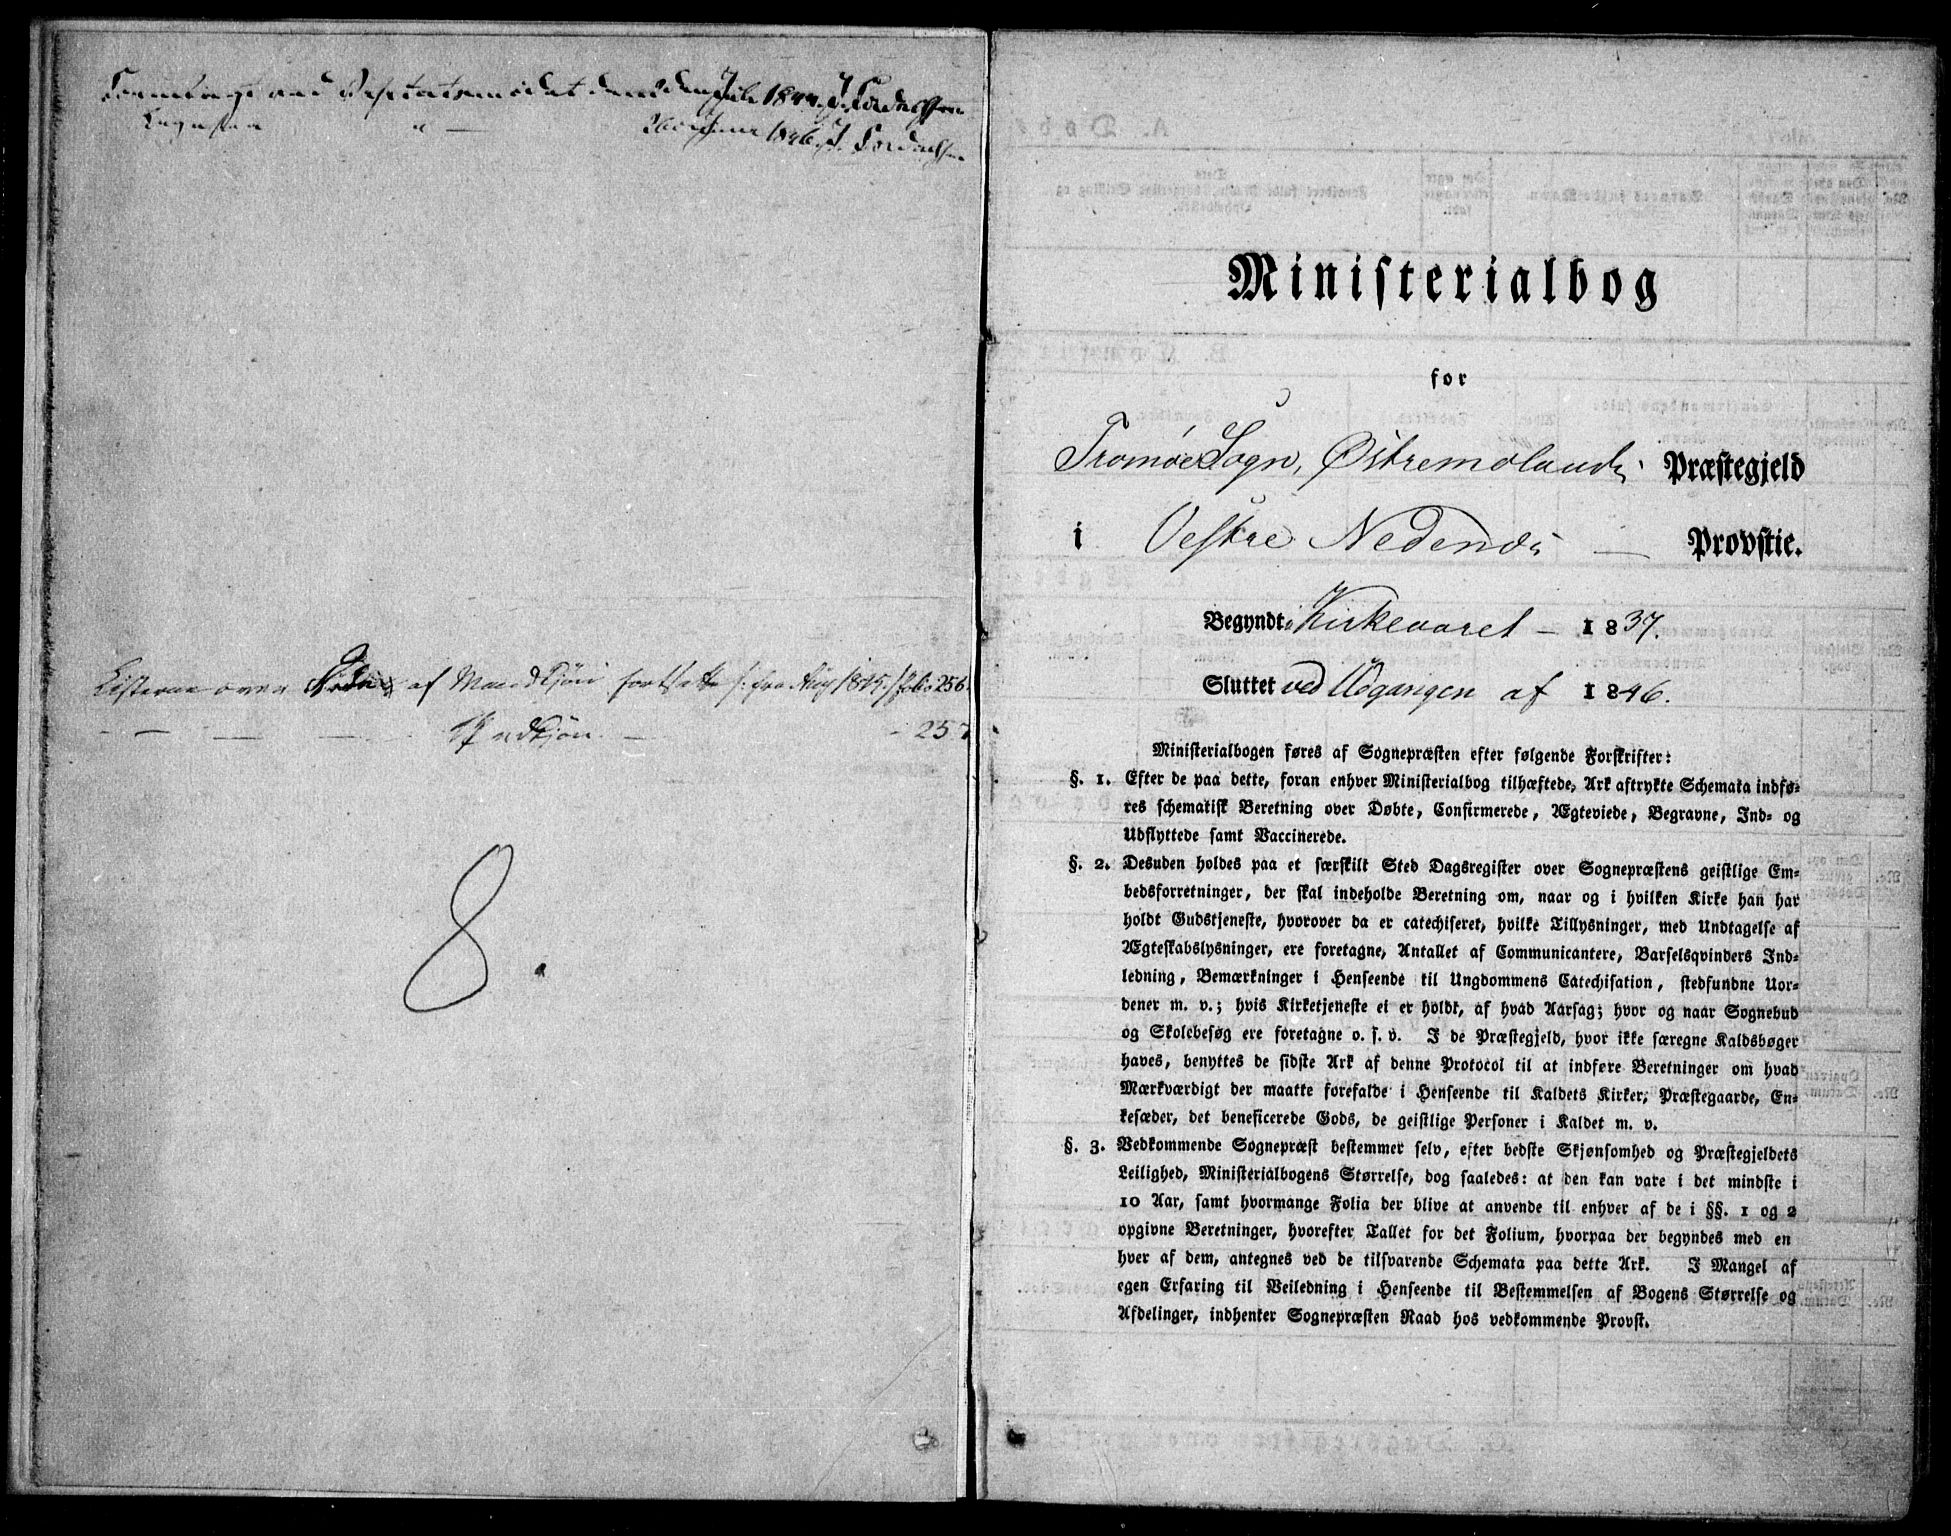 Fremlagt ved Visitatsmødet den Juli 1844. J. Tordessen
Ligesaa " — Juni 1846. J. Tordessen
Listerne over Døde af Mandkjøn fortsatte fra Aug 1845. folio 256.
— — — — Qvindkjøn. — - 257
8.
Ministerialbog
for
Tromøe Sogn, Østremolands Præstegjeld
i Vestre Nedenæs — Provstie.
Begyndt i Kirkeaaret — 1837.
Sluttet ved Udgangen af 1846.
Ministerialbogen føres af Sognepræsten efter følgende Forskrifter:
§. 1. Efter de paa dette, foran enhver Ministerialbog tilhæftede, Ark aftrykte Schemata indfø-
res schematisk Beretning over Døbte, Confirmerede, Ægteviede, Begravne, Ind- og
Udflyttede samt Vaccinerede.
§. 2. Desuden holdes paa et særskilt Sted Dagsregister over Sognepræstens geistlige Em-
bedsforretninger, der skal indeholde Beretning om, naar og i hvilken Kirke han har
holdt Gudstjeneste, hvorover da er catechiseret, hvilke Tillysninger, med Undtagelse af
Ægteskabslysninger, ere foretagne, Antallet af Communicantere, Barselqvinders Ind-
ledning, Bemærkninger i Henseende til Ungdommens Catechisation, stedfundne Uor-
dener m. v.; hvis Kirketjeneste ei er holdt, af hvad Aarsag; hvor og naar Sognebud
og Skolebesøg ere foretagne o. s. v. I de Præstegjeld, hvor ikke særegne Kaldsbøger
haves, benyttes de sidste Ark af denne Protocol til at indføre Beretninger om hvad
Mærkværdigt der maatte forefalde i Henseende til Kaldets Kirker, Præstegaarde, En-
kesæder, det beneficerede Gods, de geistlige Personer i Kaldet m. v.
§. 3. Vedkommende Sognepræst bestemmer selv, efter bedste Skjønsomhed og Præstegjeldets
Leilighed, Ministerialbogens Størrelse, dog saaledes: at den kan vare i det mindste i
10 Aar, samt hvormange Folia der blive at anvende til enhver af de i §§. 1 og 2
opgivne Beretninger, hvorefter Tallet for det Folium, hvorpaa der begyndes med en
hver af dem, antegnes ved de tilsvarende Schemata paa dette Ark. I Mangel af
egen Erfaring til Veiledning i Henseende til Bestemmelsen af Bogens Størrelse og
Afdelinger, indhenter Sognepræsten Raad hos vedkommende Provst.